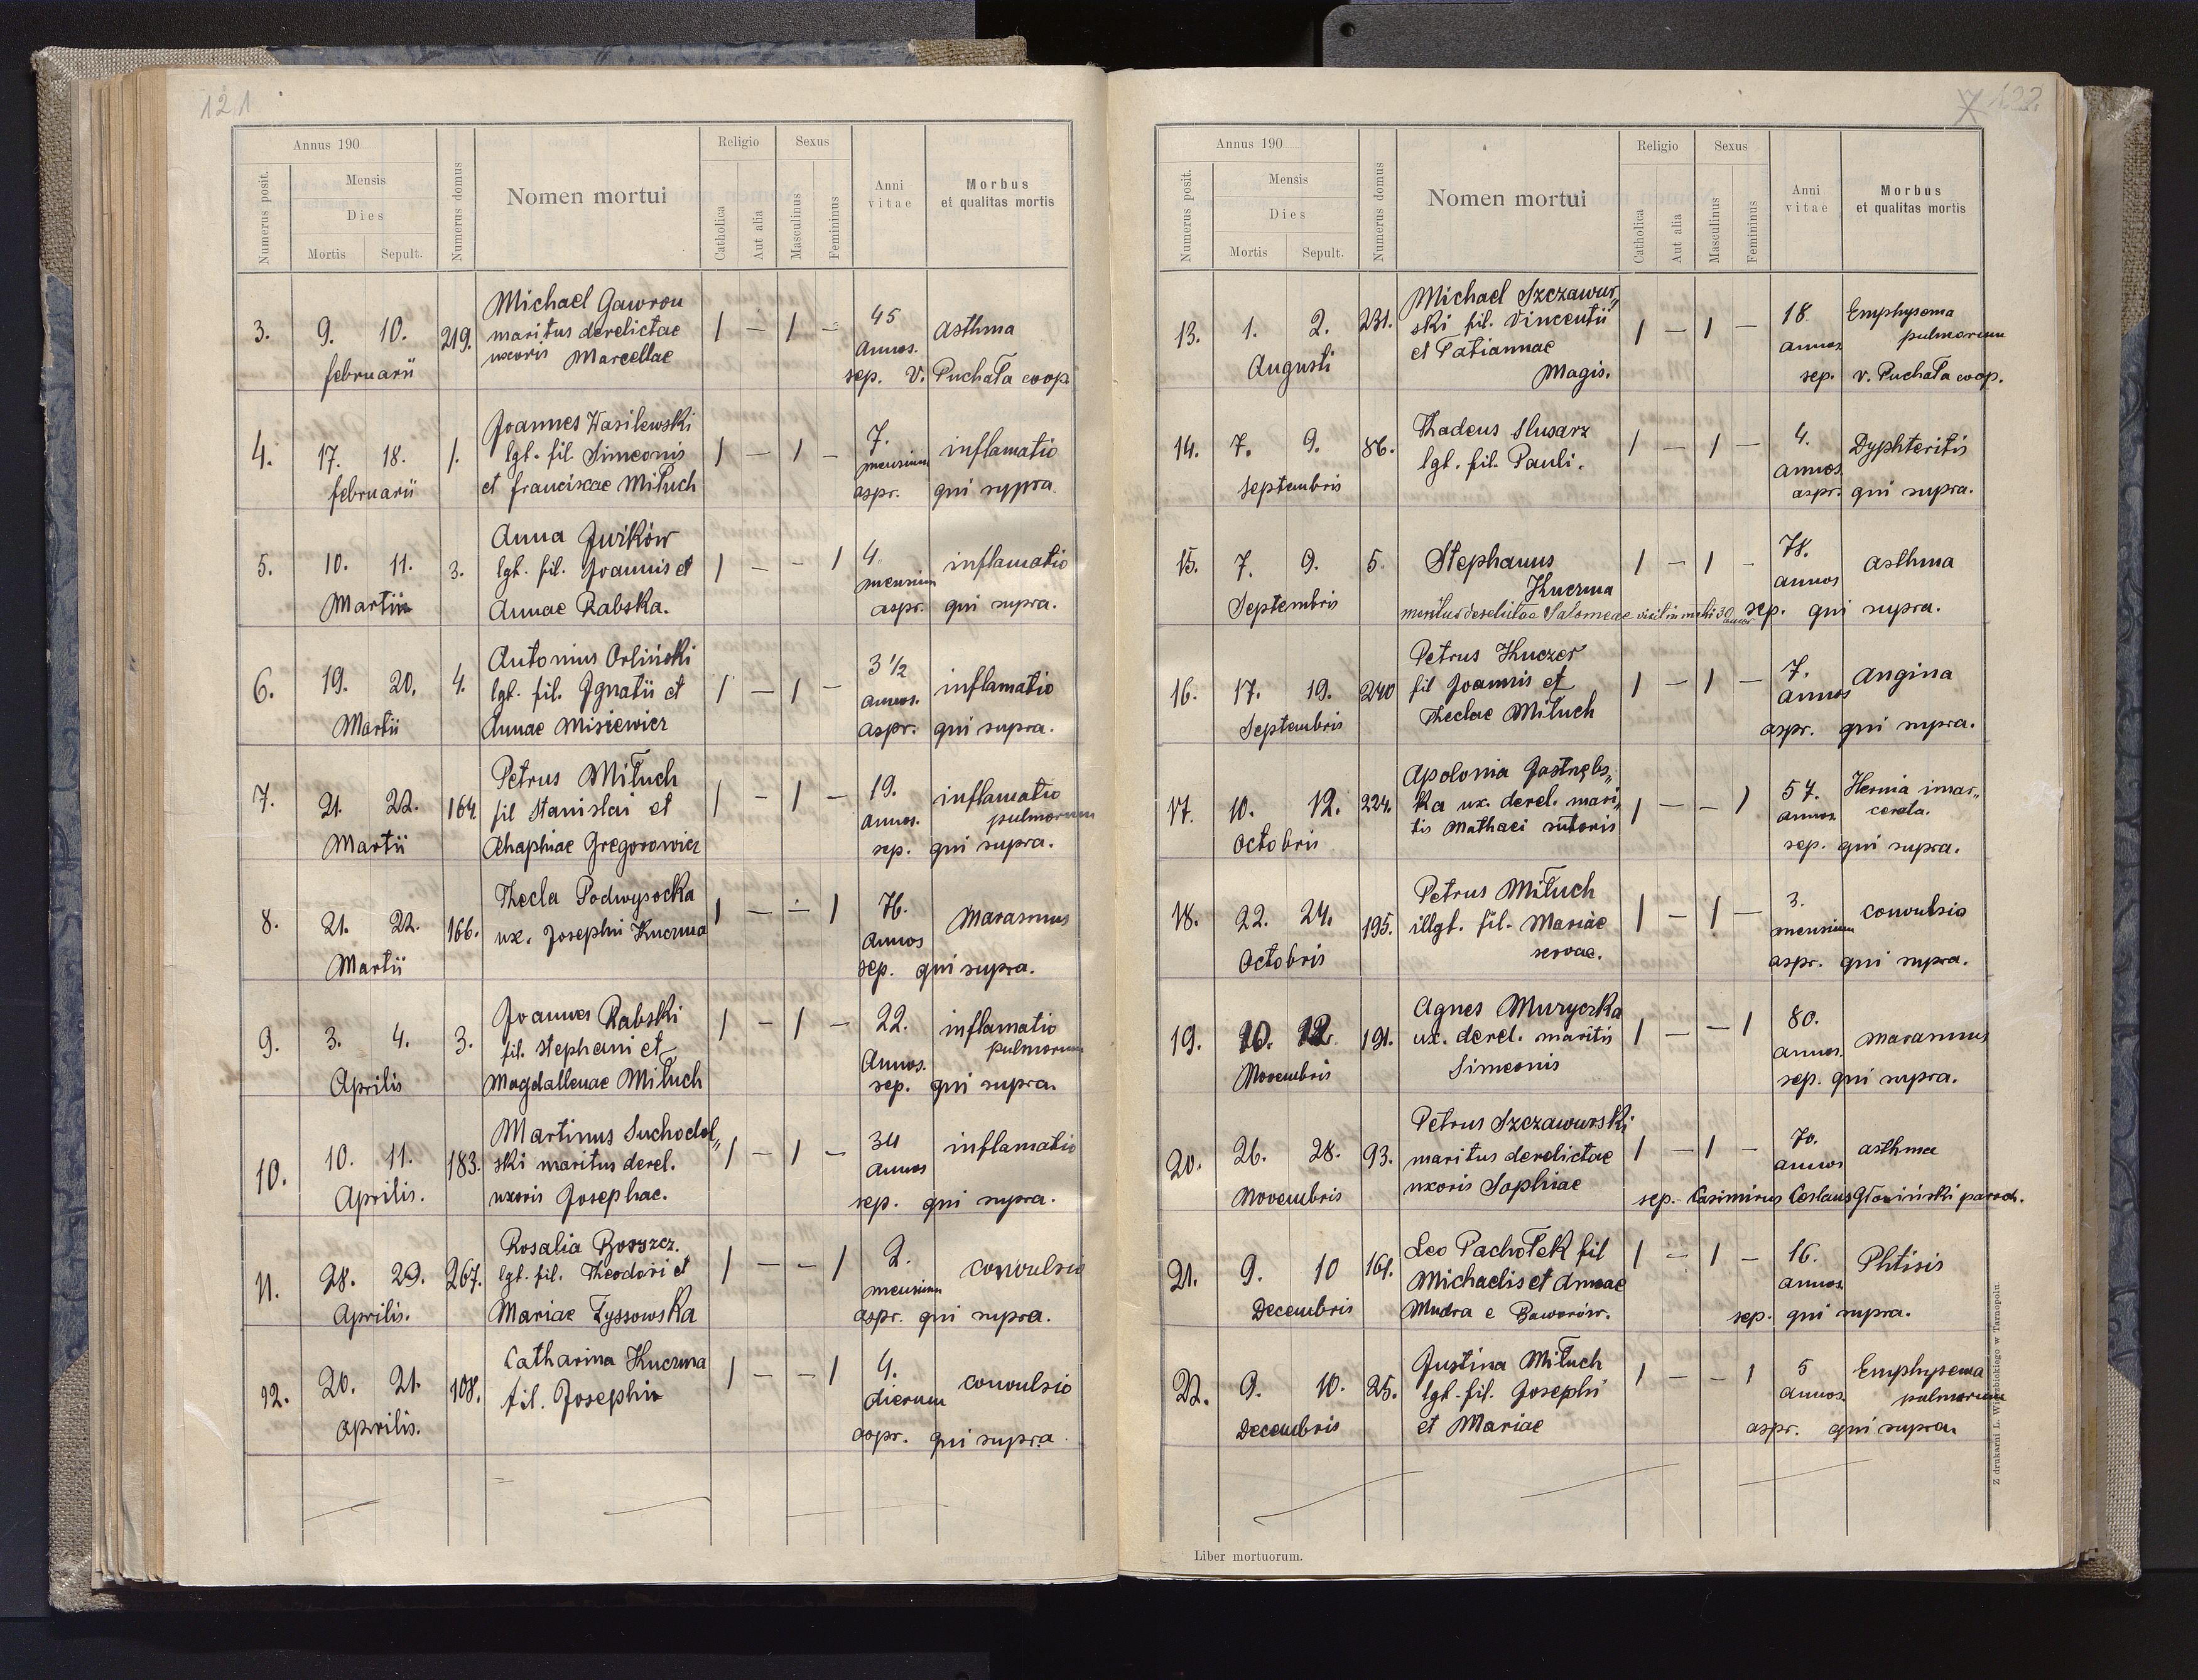 121
Annus 190
Numerus posit.
Mensis
Dies
Mortis Sepult.
Numerus domus
Nomen mortui
Religio
Catholica
Aut alia
Sexus
Masculinus
Femininus
Anni
vitae
Morbus
et qualitas mortis
3. 9. 10. 219. Michael Gawron 1 — 1 — 45 asthma
februarii maritus derelictae annos.
uxoris Marcellae sep. V. Puchała coop.
4. 17. 18. 1. Joannes Wasilewski 1 — 1 — 7. inflamatio
februarii lgt. fil Simeonis mensium
et franciscae Miłuch aspr. qui sypra.
5. 10. 11. 3. Anna Jurków 1 — — 1 4. inflamatio
Martii lgt. fil. Joannis et mensium
Annae Rabska. aspr. qui supra.
6. 19. 20. 4. Antonius Orliński 1 — 1 — 3 1/2 inflamatio
Martii lgt. fil. Ignatii et annos.
Annae Misiewicz aspr. qui supra.
7. 21. 22. 164 Petrus Miłuch 1 — 1 — 19. inflamatio
Martii fil Stanislai et annos. pulmorum
Ahaphiae Gregorowicz sep. qui supra.
8. 21. 22. 166. Thecla Podwysocka 1 — — 1 76. Marasmus
Martii ux. Josephi Kuczma annos
sep. qui supra.
9. 3. 4. 3. Joannes Rabski 1 — 1 — 22. inflamatio
Aprilis fil. Stephani et Annos. pulmorum
Magdallenae Miłuch sep. qui supra.
10. 10. 11. 183. Martinus Suchodol„ 1 — 1 — 34 inflamatio
Aprilis. ski maritus derel. annos
uxoris Josephae. sep. qui supra.
11. 28. 29. 267. Rosalia Boryszcz. 1 — — 1 2. convulsio
Aprilis. lgt. fil. Theodori et mensium
Mariae Zyssowska aspr. qui supra.
12. 20. 21. 108. Catharina Kuczma 1 — — 1 4. convulsio
aprilis. fil. Josephi dierum
aspr. qui supra.
7 122.
Annus 190
Numerus posit.
Mensis
Dies
Mortis Sepult.
Numerus domus
Nomen mortui
Religio
Catholica
Aut alia
Sexus
Masculinus
Femininus
Anni
vitae
Morbus
et qualitas mortis
13. 1. 2. 231. Michael Szczawur„ 1 — 1 — 18 Emphysema
Augusti ski fil. Vincentii annos pulmorum
et Tatiannae
Magis. sep. v. Puchała coop.
14. 7. 9. 86. Thadeus Slusarz 1 — 1 — 4. Dyphteritis
septembris lgt. fil. Pauli. annos.
aspr. qui supra.
15. 7. 9. 5. Stephanus 1 — 1 — 78. asthma
Septembris Kuczma annos
Salomeae sep. qui supra.
16. 17. 19. 240 Petrus Kuczer 1 — 1 — 7. angina
Septembris fil Joannis et annos
Theclae Miłuch aspr. qui supra.
17. 10. 12. 224. Apolonia Jastrzębs„ 1 — — 1 57. Hernia incar„
Octobris ka ux. derel. mari„ annos cerata.
tis Mathaei sutoris sep. qui supra.
18. 22. 24. 195. Petrus Miłuch 1 — 1 — 3. convulsio
Octobris illgt. fil. Mariae mensium
servae. aspr. qui supra.
19. 10. 12. 191. Agnes Muryczka 1 — — 1 80. marasmus
Novembris ux. derel. maritii annos.
Simeonis sep. qui supra.
20. 26. 28. 93. Petrus Szczawurski 1 — 1 — 70. asthma
Novembris maritus derelictae annos
uxoris Sophiae sep. Casimirus Ceslaus Głowiński paroch.
21. 9. 10 161. Leo Pachołek fil 1 — 1 — 16. Phtisis
Decembris Michaelis et Annae annos.
Mudra e Baworów. sep. qui supra.
22. 9. 10. 25. Justina Miłuch 1 — — 1 5 Emphysema
Decembris lgt. fil. Josephi annos. pulmorum
et Mariae aspr. qui supra.
Liber mortuorum.
Z drukarni L. Wierzbickiego w Tarnopolu.